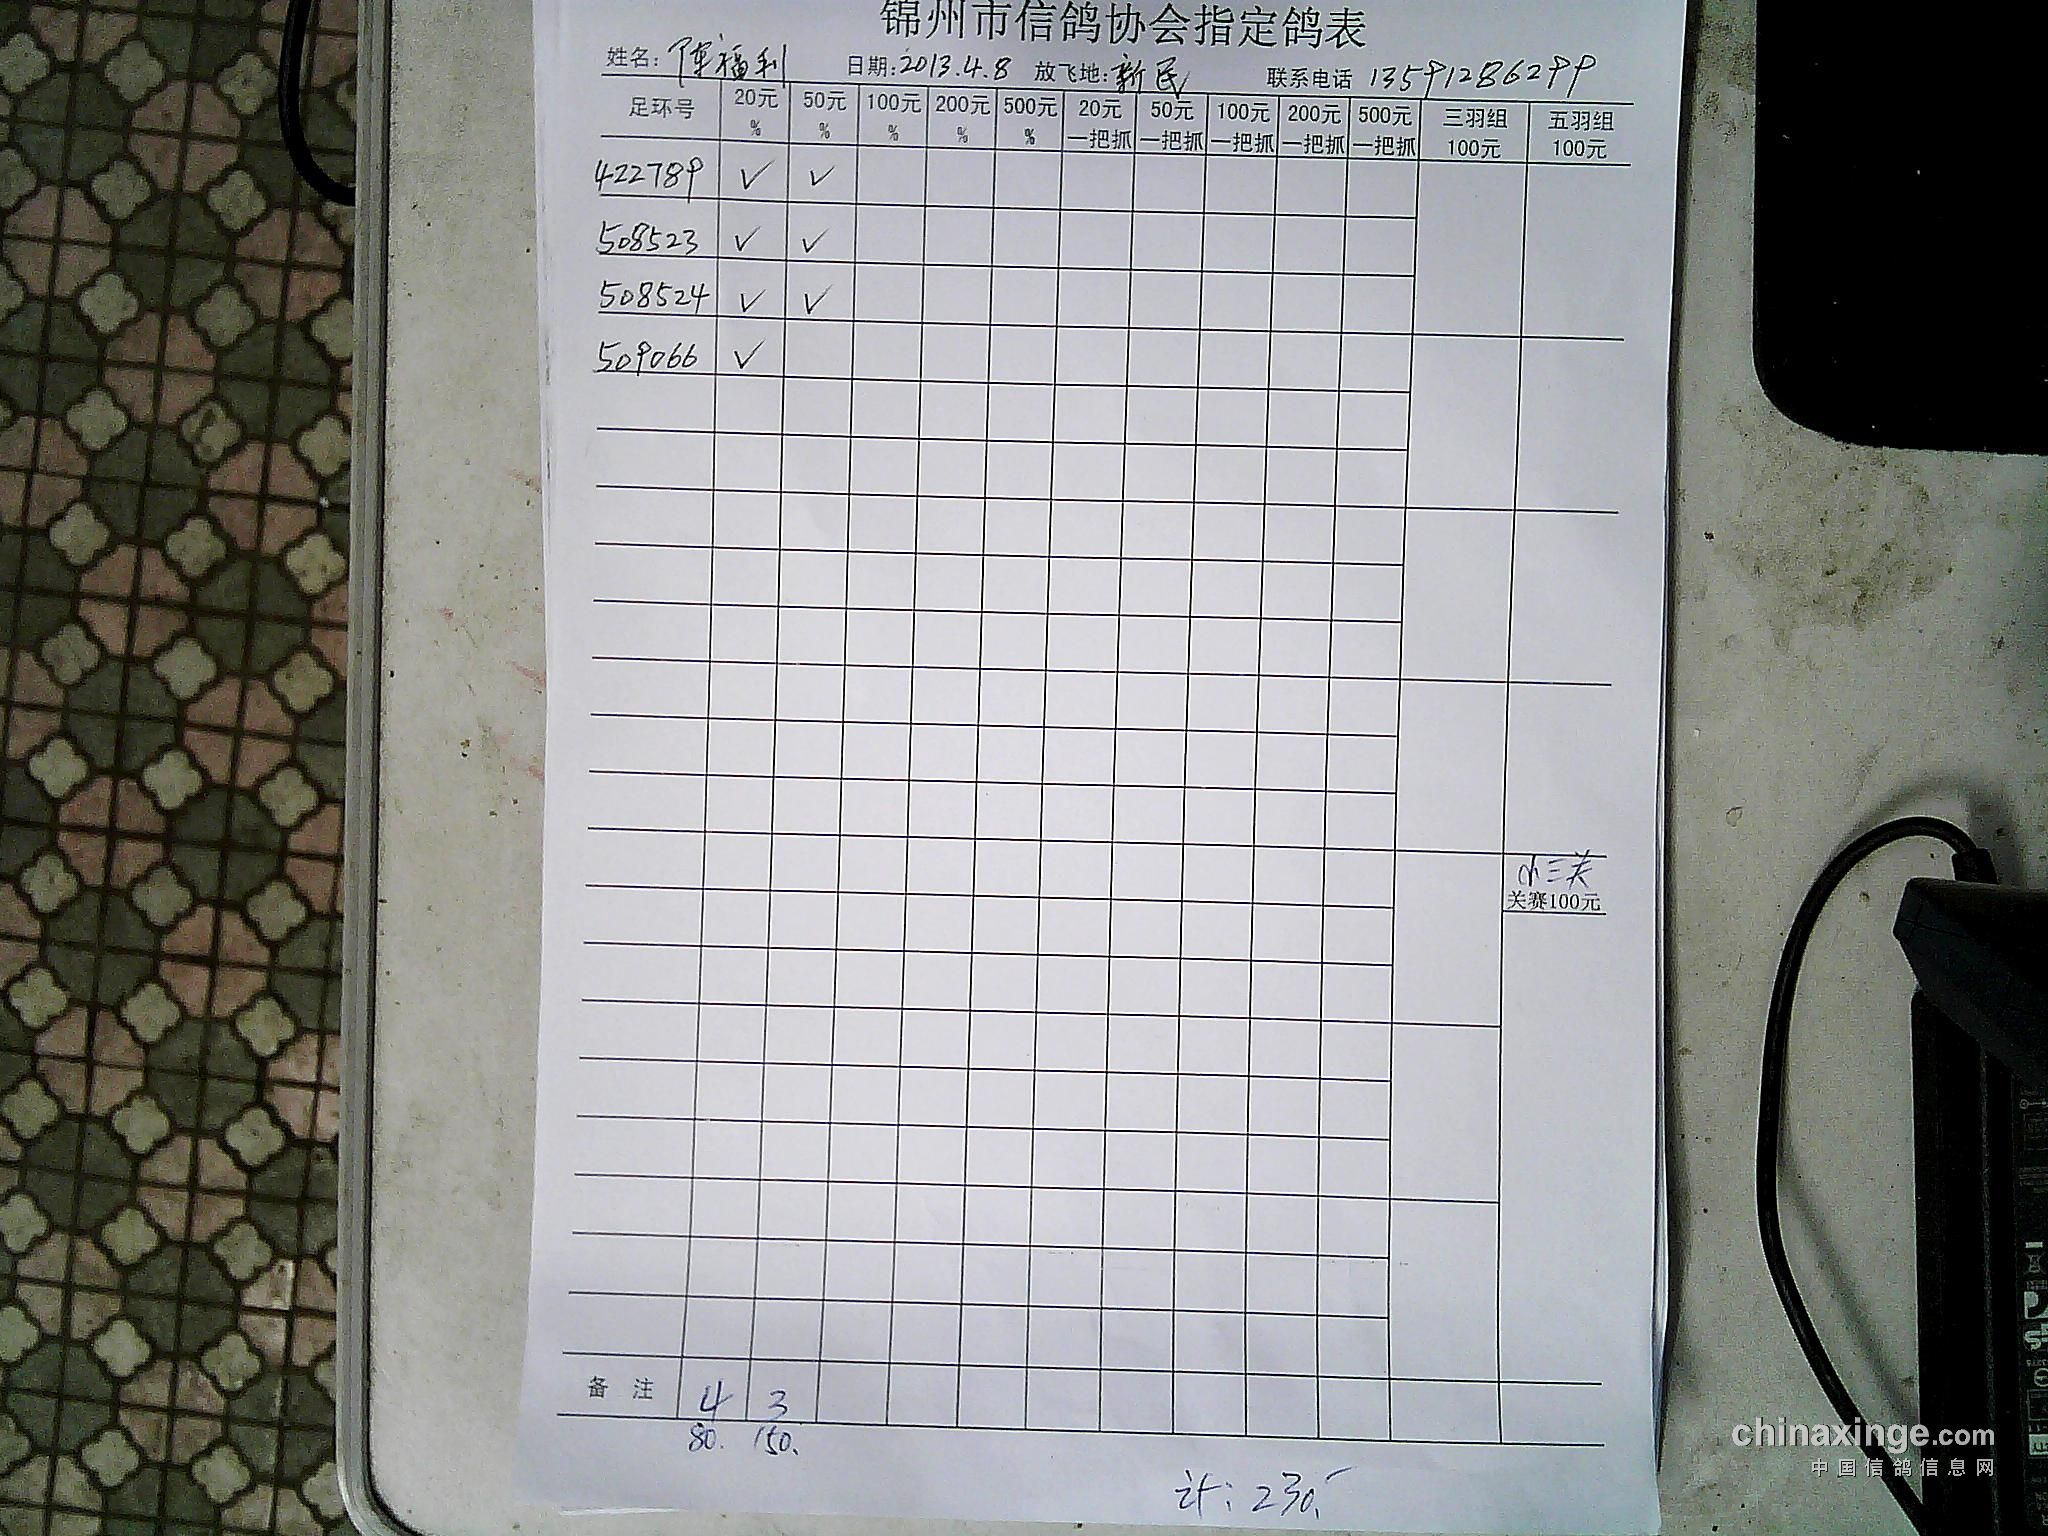 锦州市信鸽协会指定鸽表
姓名: 陈福利 日期:2013.4.8 放飞地:新民 联系电话 13591286299
足环号 20元 50元 100元 200元 500元 20元 50元 100元 200元 500元 三羽组 五羽组
% % % % % 一把抓 一把抓 一把抓 一把抓 一把抓 100元 100元
422789 ✓ ✓
508523 ✓ ✓
508524 ✓ ✓
509066 ✓
小三关
关赛100元
备 注 4 3
80. 150.
计: 230.
chinaxinge.com
中国信鸽信息网